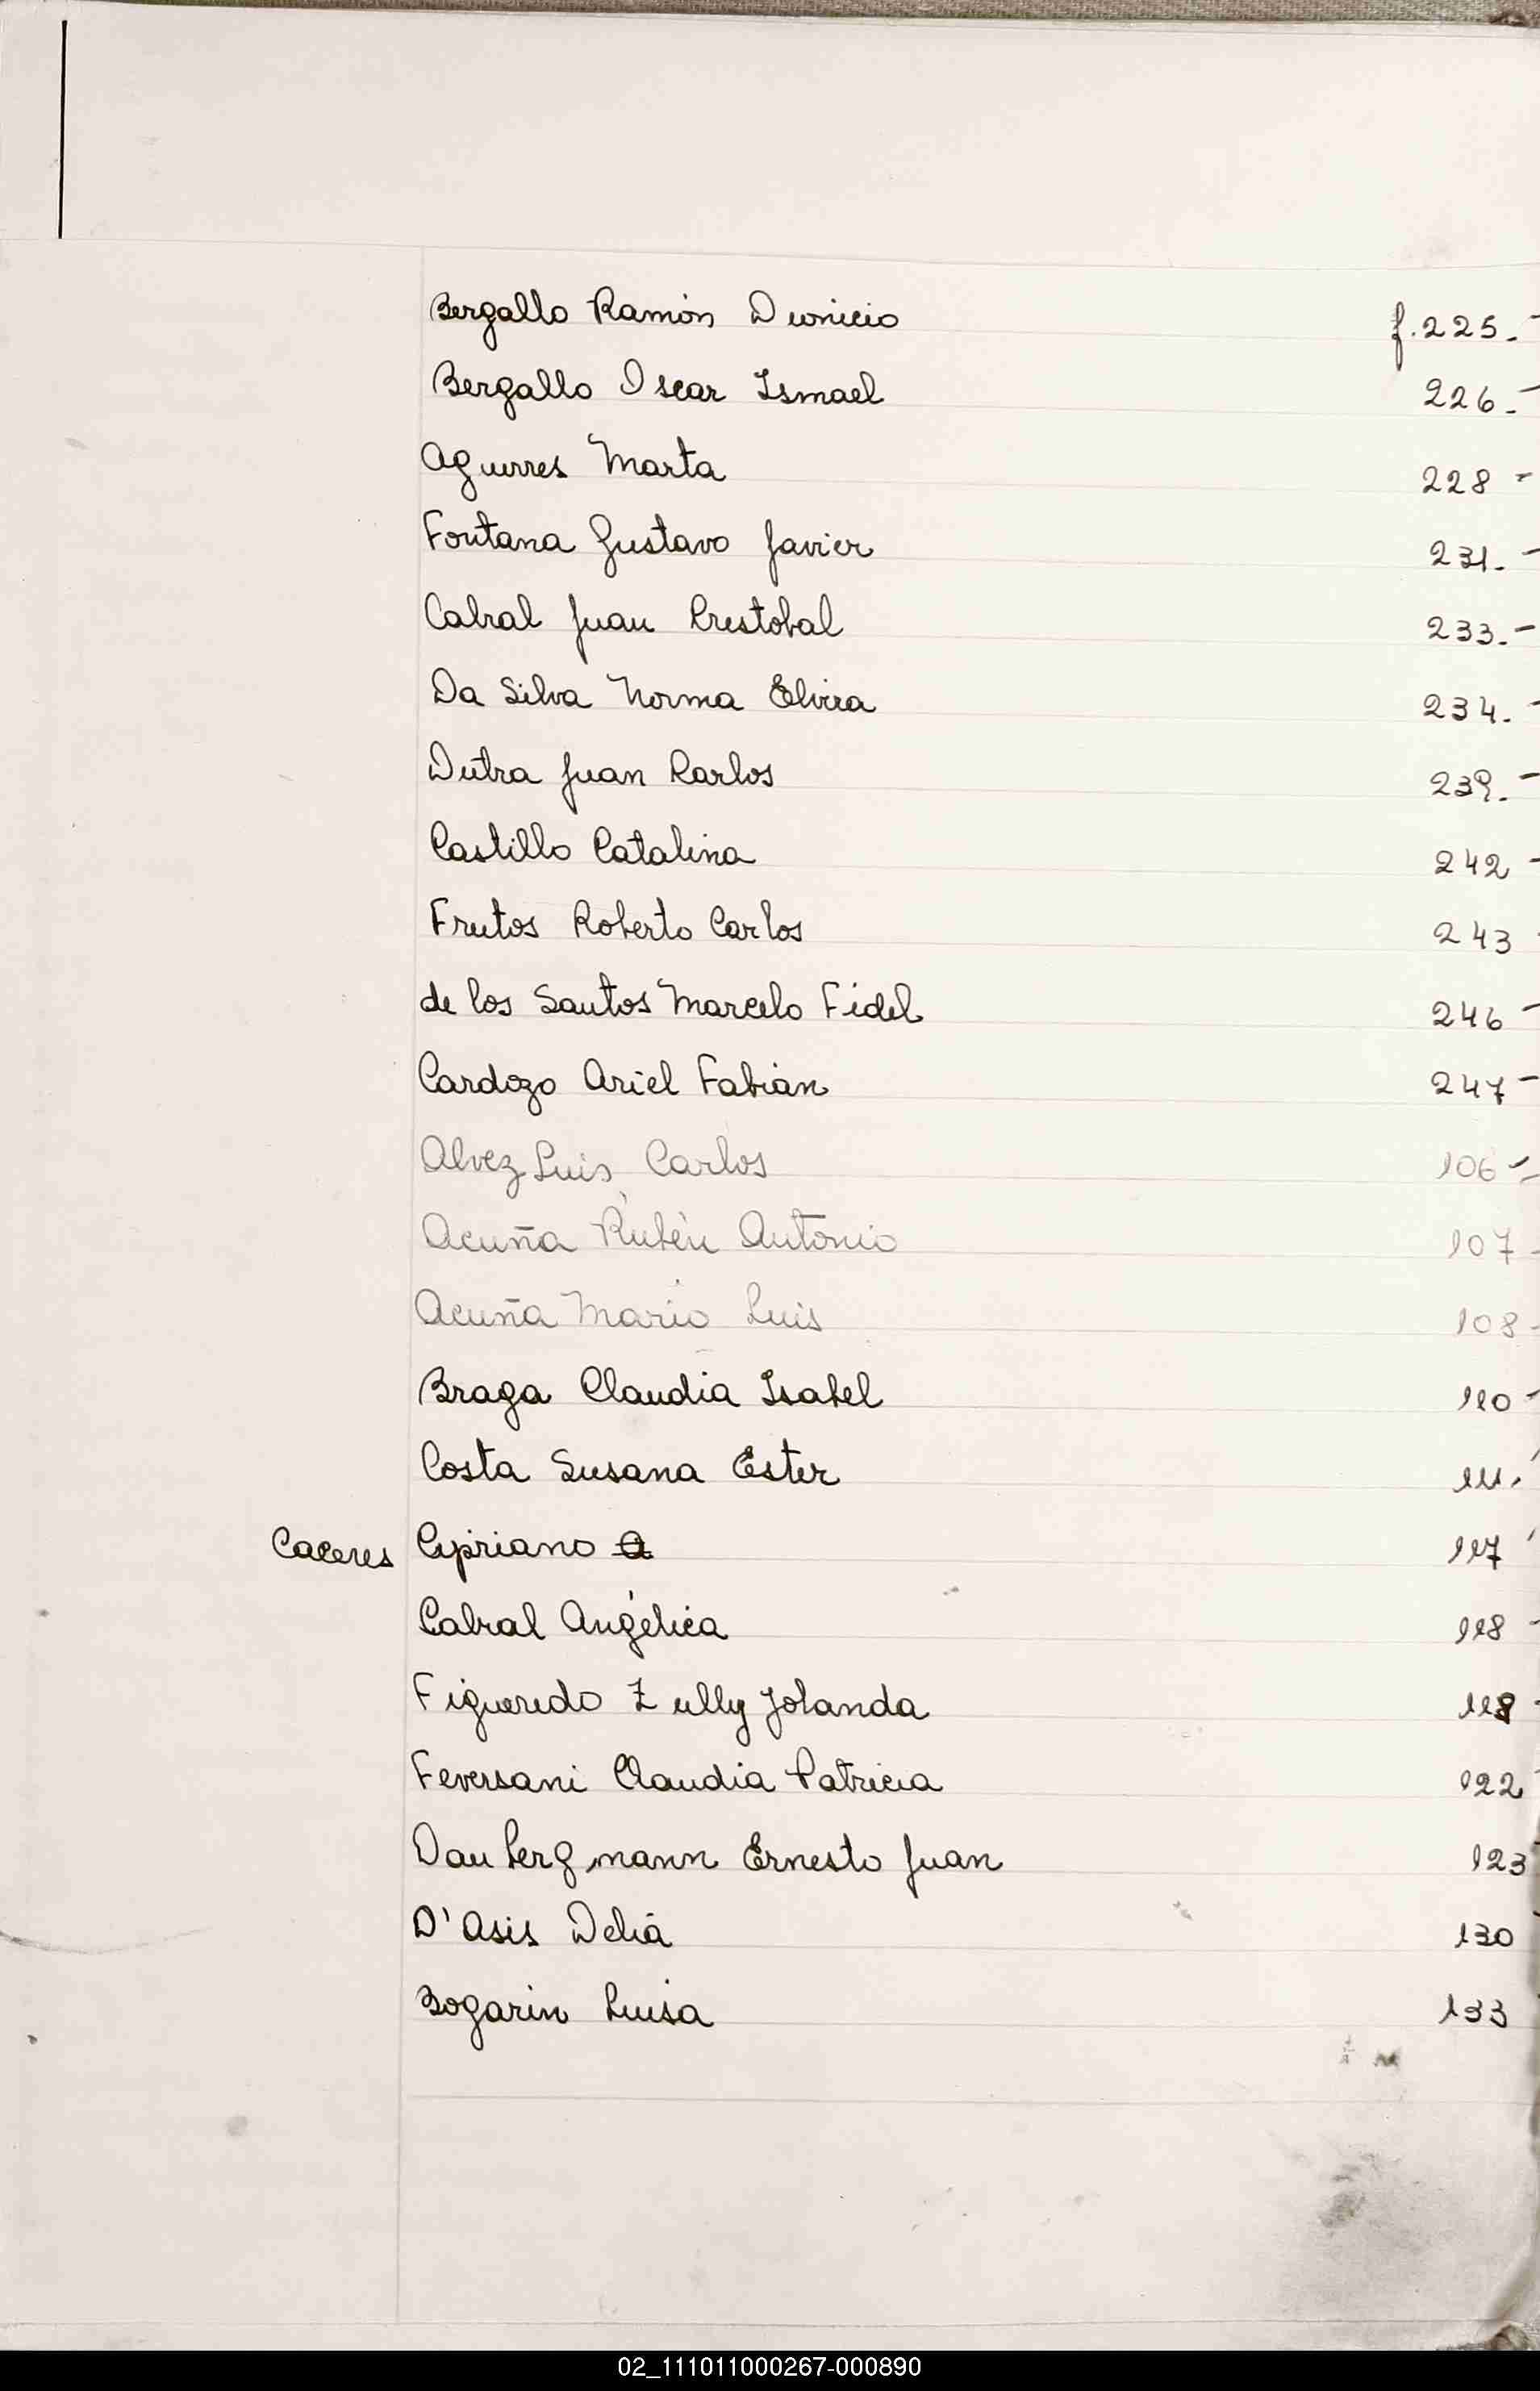 Bergallo Ramón Dionicio f. 225.-
Bergallo Oscar Ismael 226.-
Aguirres Marta 228 -
Fontana Gustavo Javier 231.-
Cabral Juan Cristobal 233.-
Da Silva Norma Elvira 234.-
Dutra Juan Carlos 239.-
Castillo Catalina 242 -
Frutos Roberto Carlos 243
de los Santos Marcelo Fidel 246 -
Cardozo Ariel Fabian 247 -
Alvez Luis Carlos 106 -
Acuña Rubén Antonio 107 -
Acuña Mario Luis 108 -
Braga Claudia Isabel 110 -
Costa Susana Ester 111.
Caceres Cipriano 117
Cabral Angélica 118 -
Figueredo Zully Yolanda 118 -
Feversani Claudia Patricia 122
Daubergmann Ernesto Juan 123
D'Asis Delia 130
Bogarin Luisa 133
02_111011000267-000890